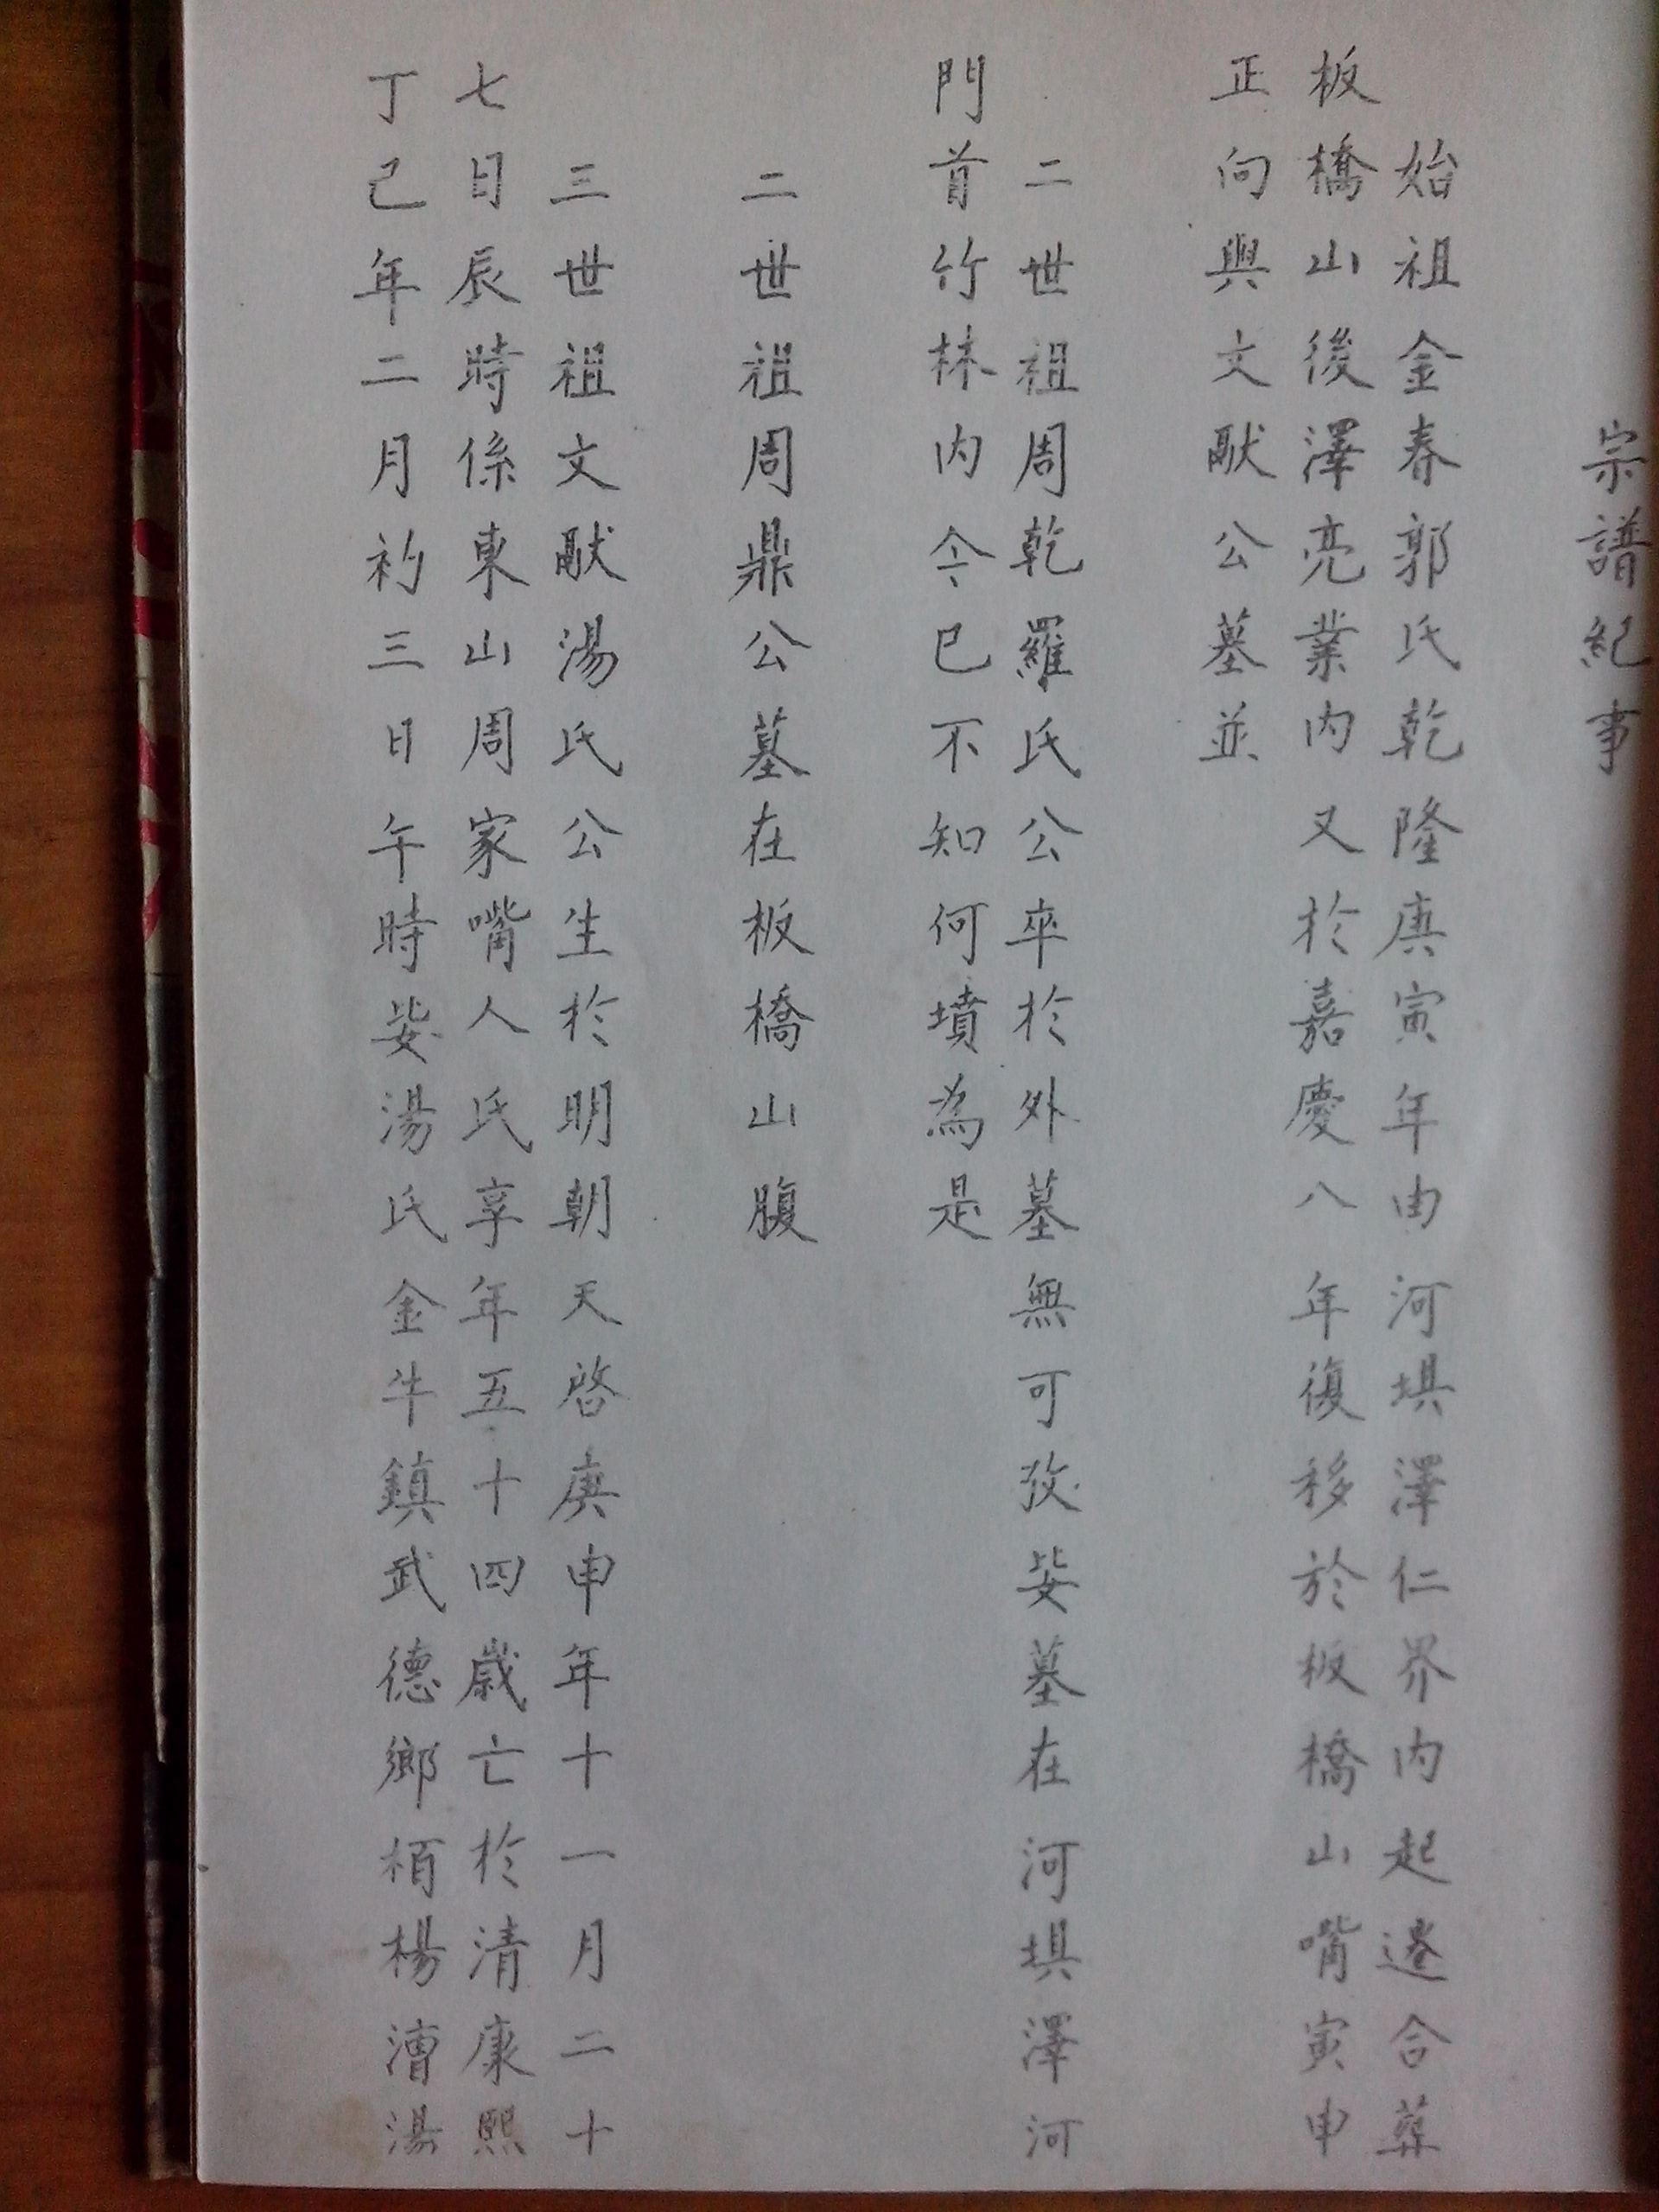 宗譜紀事
始祖金春郭氏乾隆庚寅年由河埧澤仁界内起遷合葬
板橋山後澤亮業内又於嘉慶八年復移於板橋山嘴寅申
正向與文献公墓並
二世祖周乾羅氏公卒於外墓無可攷妣墓在河埧澤河
門首竹林内今已不知何墳為是
二世祖周鼎公墓在板橋山腹
三世祖文献湯氏公生於明朝天啓庚申年十一月二十
七日辰時係東山周家嘴人氏享年五十四歲亡於清康熙
丁己年二月初三日午時妣湯氏金牛鎮武德鄉栢楊漕湯